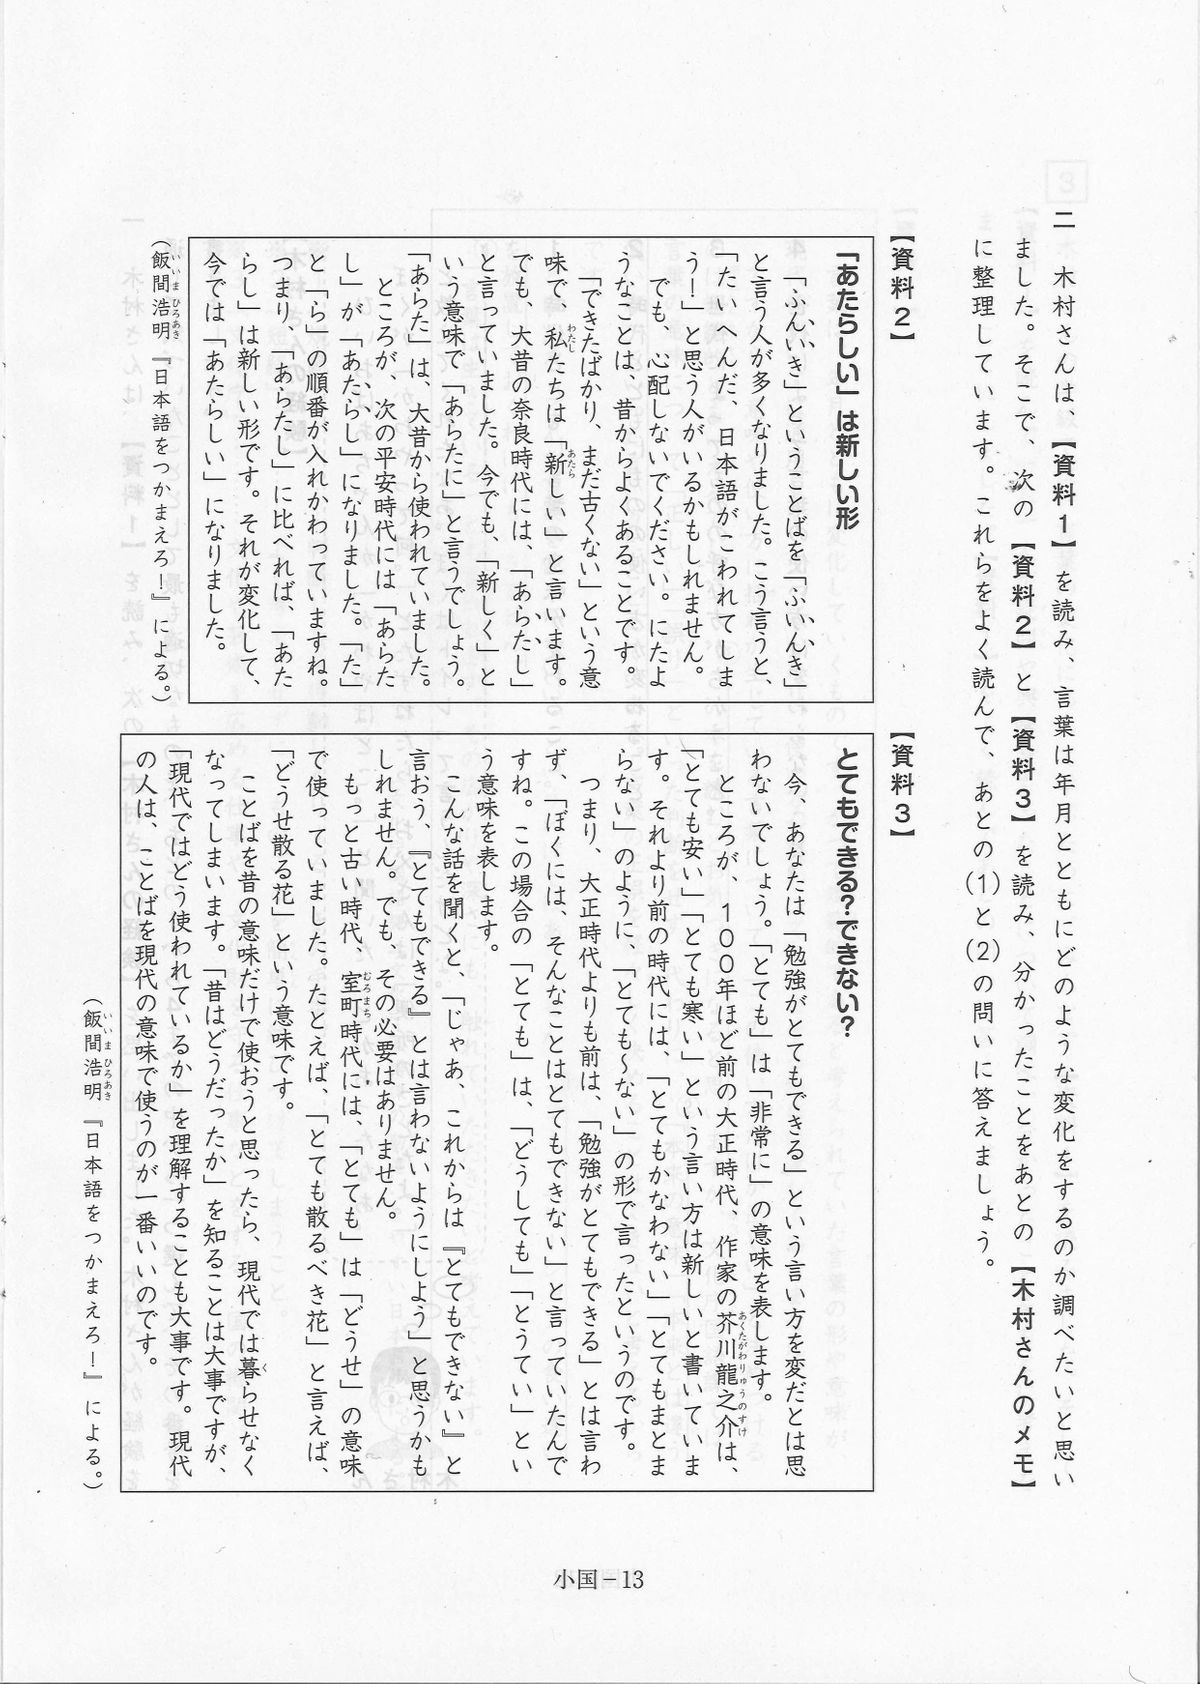 二　木村さんは、【資料１】を読み、言葉は年月とともにどのような変化をするのか調べたいと思い
ました。そこで、次の【資料２】と【資料３】を読み、分かったことをあとの【木村さんのメモ】
に整理しています。これらをよく読んで、あとの(1)と(2)の問いに答えましょう。
【資料２】
「あたらしい」は新しい形
「ふんいき」ということばを「ふいんき」
と言う人が多くなりました。こう言うと、
「たいへんだ、日本語がこわれてしま
う！」と思う人がいるかもしれません。
でも、心配しないでください。にたよ
うなことは、昔からよくあることです。
「できたばかり、まだ古くない」という意
味で、私たちは「新しい」と言います。
わたし
あたら
でも、大昔の奈良時代には、「あらたし」
と言っていました。今でも、「新しく」と
いう意味で「あらたに」と言うでしょう。
「あらた」は、大昔から使われていました。
ところが、次の平安時代には「あらた
し」が「あたらし」になりました。「た」
と「ら」の順番が入れかわっていますね。
つまり、「あらたし」に比べれば、「あた
らし」は新しい形です。それが変化して、
今では「あたらしい」になりました。
（飯間浩明『日本語をつかまえろ！』による。）
いいま ひろあき
【資料３】
とてもできる？できない？
今、あなたは「勉強がとてもできる」という言い方を変だとは思
わないでしょう。「とても」は「非常に」の意味を表します。
ところが、１００年ほど前の大正時代、作家の芥川龍之介は、
あくたがわりゅうのすけ
「とても安い」「とても寒い」という言い方は新しいと書いていま
す。それより前の時代には、「とてもかなわない」「とてもまとま
らない」のように、「とても～ない」の形で言ったというのです。
つまり、大正時代よりも前は、「勉強がとてもできる」とは言わ
ず、「ぼくには、そんなことはとてもできない」と言っていたんで
すね。この場合の「とても」は、「どうしても」「とうてい」とい
う意味を表します。
こんな話を聞くと、「じゃあ、これからは『とてもできない』と
言おう、『とてもできる』とは言わないようにしよう」と思うかも
しれません。でも、その必要はありません。
もっと古い時代、室町時代には、「とても」は「どうせ」の意味
むろまち
で使っていました。たとえば、「とても散るべき花」と言えば、
「どうせ散る花」という意味です。
ことばを昔の意味だけで使おうと思ったら、現代では暮らせなく
く
なってしまいます。「昔はどうだったか」を知ることは大事ですが、
「現代ではどう使われているか」を理解することも大事です。現代
の人は、ことばを現代の意味で使うのが一番いいのです。
（飯間浩明『日本語をつかまえろ！』による。）
いいま ひろあき
小国－13